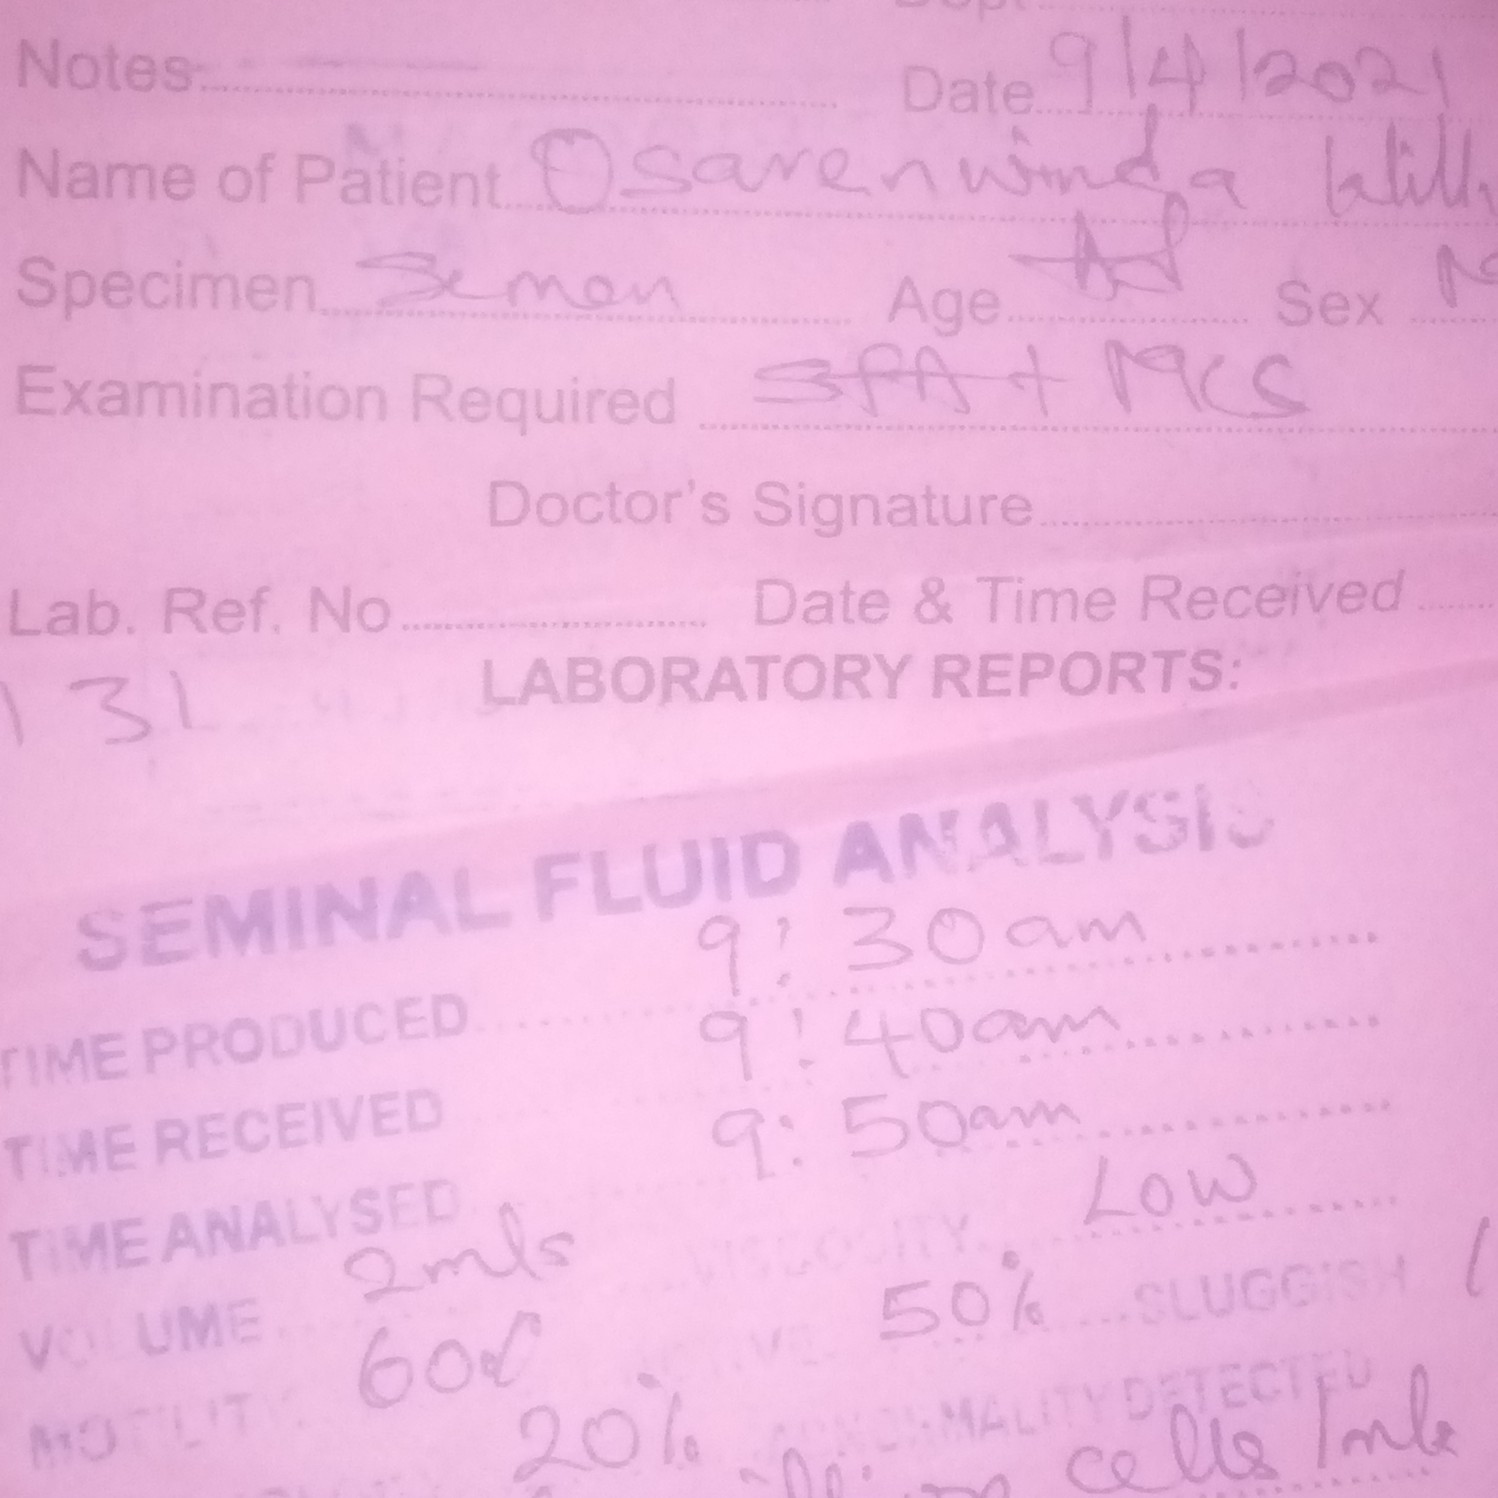 Notes.......... Date 9/4/2021
Name of Patient Osarenwinda
Specimen Semen Age Ad Sex M
Examination Required SFA + MCS
Doctor's Signature..........
Lab. Ref. No.......... Date & Time Received..........
131 LABORATORY REPORTS:
SEMINAL FLUID ANALYSIS
TIME PRODUCED 9:30am
TIME RECEIVED 9:40am
TIME ANALYSED 9:50am
VOLUME 2mls VISCOSITY Low
MOTILITY 60% ACTIVE 50% SLUGGISH
20% ABNORMALITY DETECTED
cells/mls